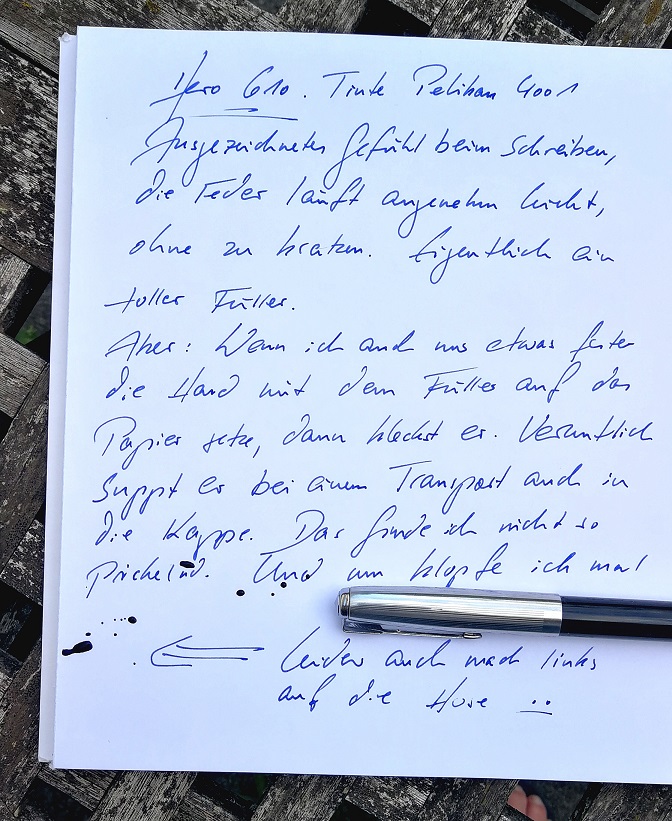 Hero 610. Tinte Pelikan 4001
Ausgezeichnetes Gefühl beim Schreiben,
die Feder läuft angenehm leicht,
ohne zu kratzen. Eigentlich ein
toller Füller.
Aber: Wenn ich auch nur etwas fester
die Hand mit dem Füller auf das
Papier setze, dann kleckst er. Vermutlich
suppt er bei einem Transport auch in
die Kappe. Das finde ich nicht so
prickelnd. Und nun klopfe ich mal
Leider auch nach links
auf die Hose